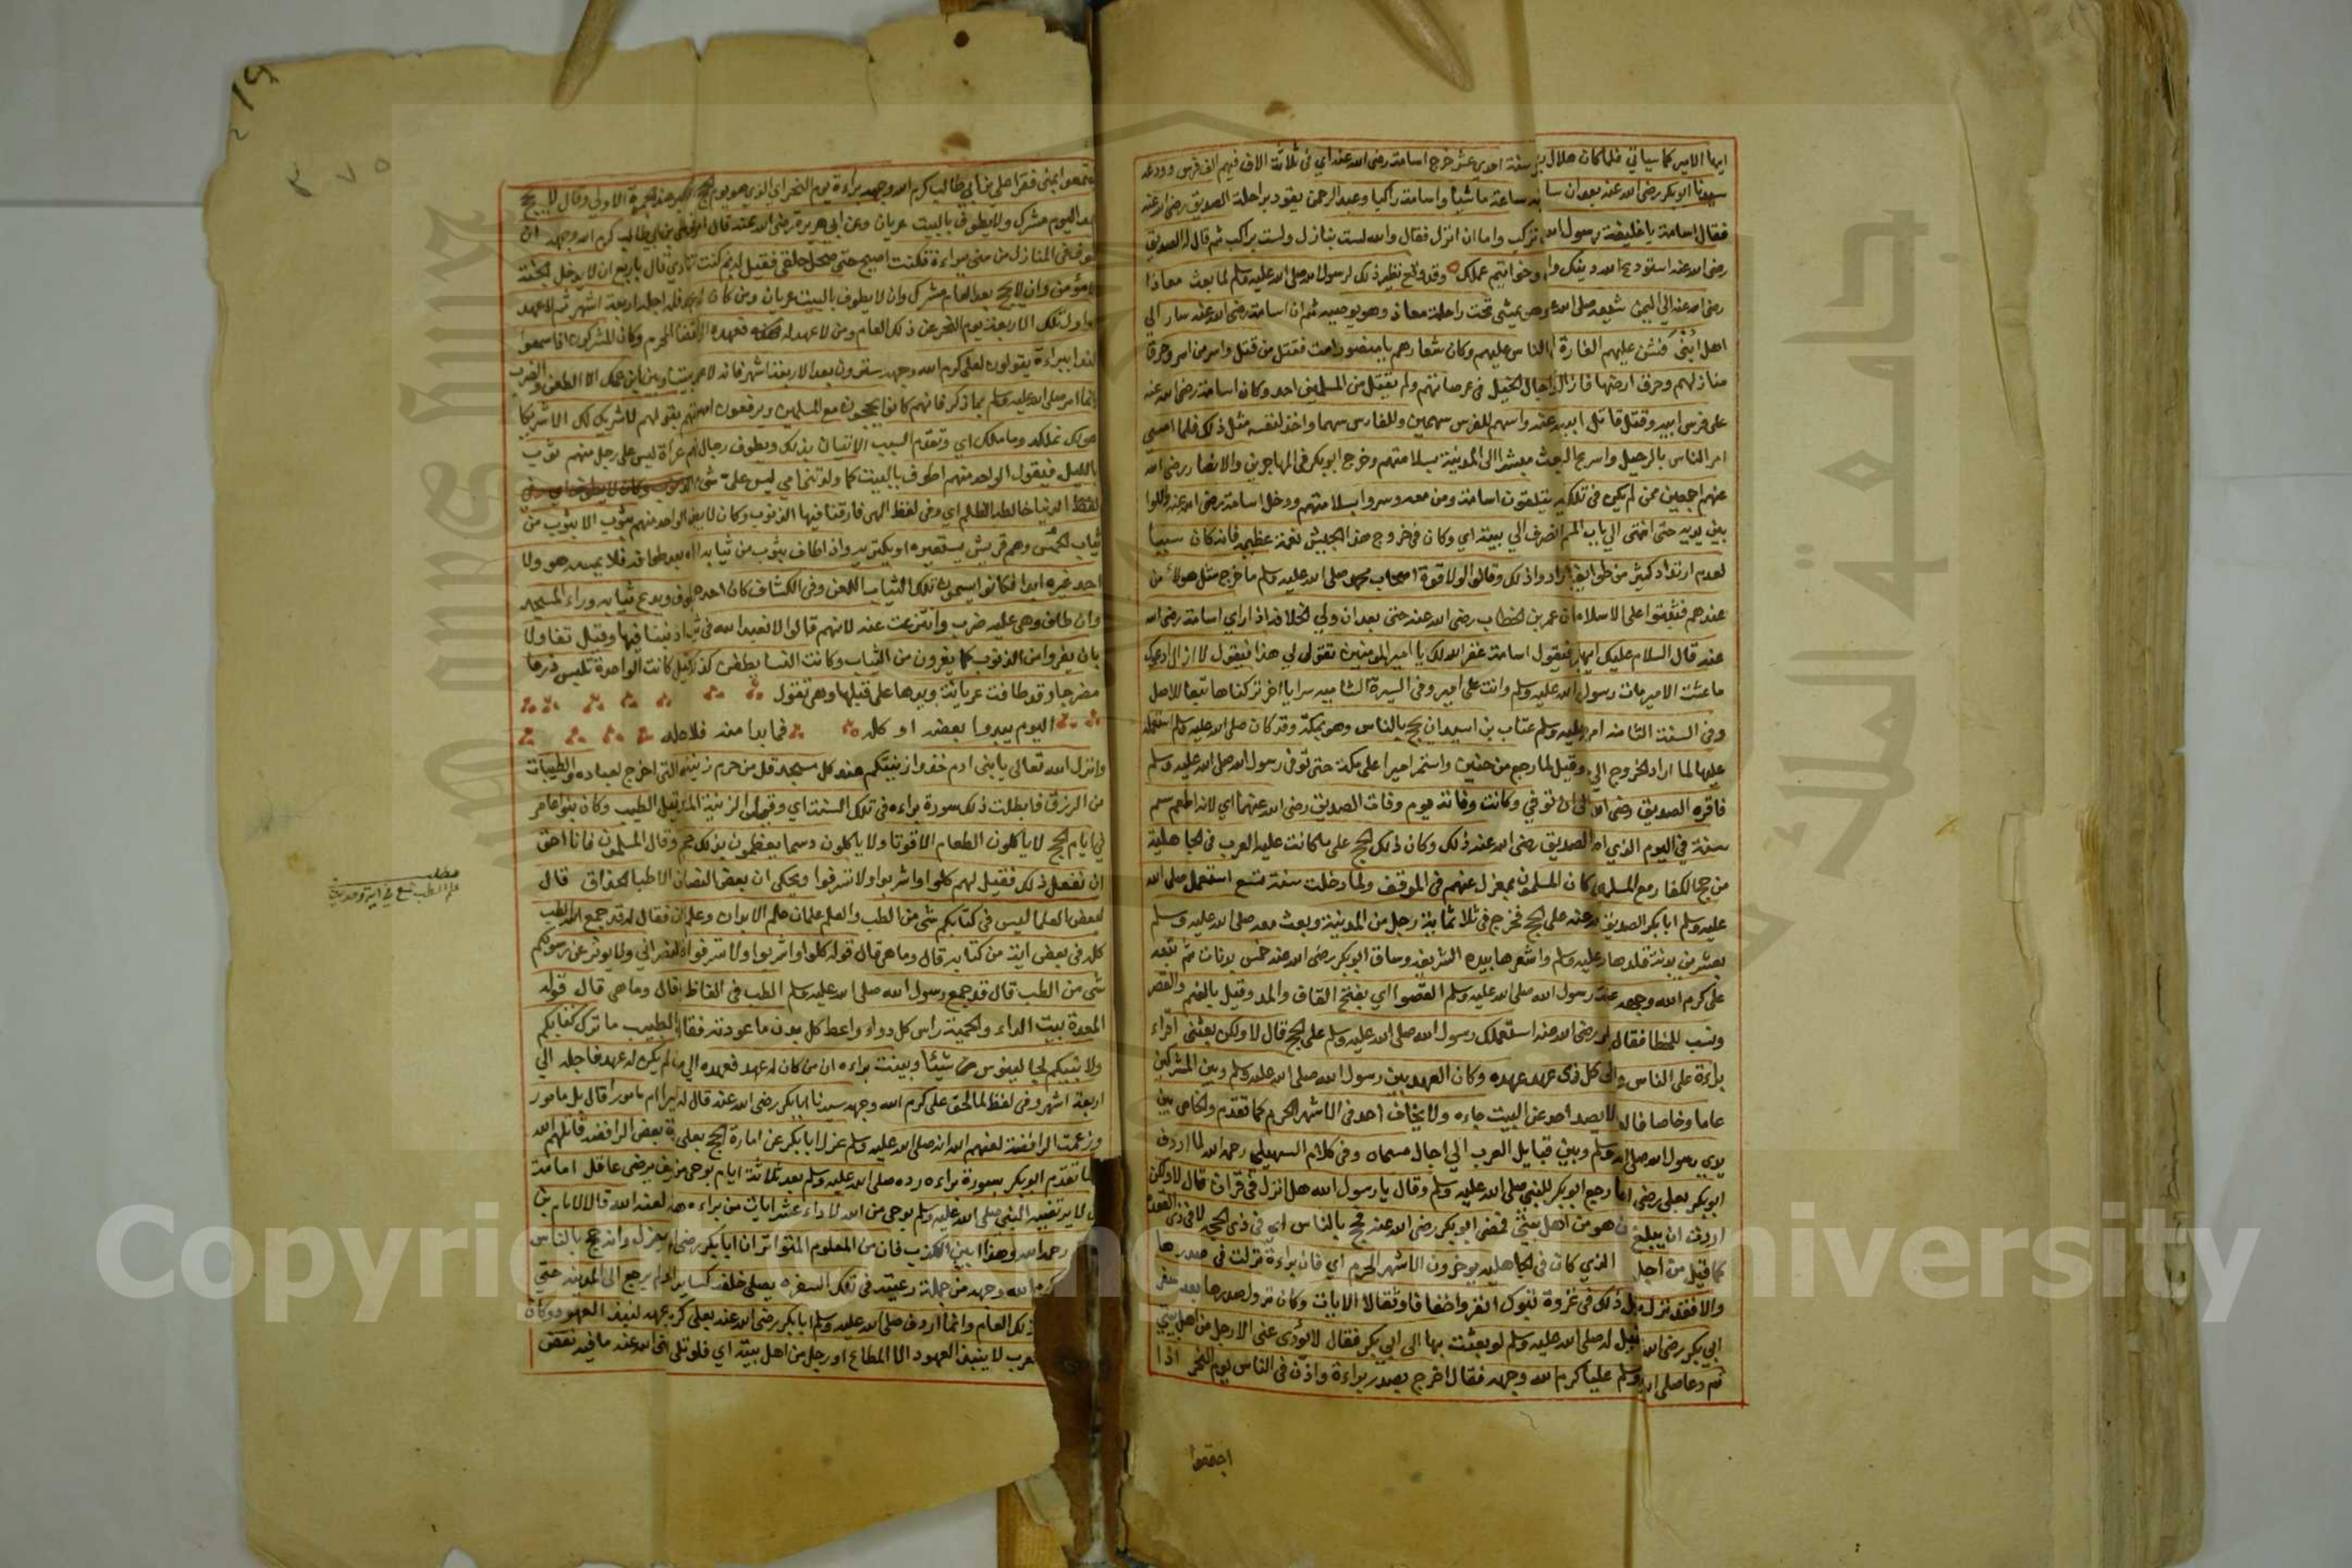 ايها الامير كما سياتي فلما كان هلال سنة احدى عشر خرج اسامة رضى الله عنه اي في ثلاثة الاف فيهم الف فرس وودعه
سيدنا ابو بكر رضى الله عنه بعد ان سا ساعة ماشيا واسامة راكبا وعبد الرحمن يقود براحلة الصديق رضى الله عنه
فقال اسامة يا خليفة رسول الله تركب واما ان انزل فقال والله لست بنازل ولست براكب ثم قال له الصديق
رضى الله عنه استودع الله دينك وا وخواتيم عملك وقد وقع نظير ذلك لرسول الله صلى الله عليه وسلم لما بعث معاذا
رضى الله عنه الي اليمن شيعه صلى الله عليه وهو يمشي تحت راحلة معاذ وهو يوصيه ثم ان اسامة رضى الله عنه سار الي
اهل ابنى فشن عليهم الغارة الناس عليهم وكان شعارهم يا منصور امت فقتل من قتل واسر من اسر وحرق
منازلهم وحرق ارضها وازال واجال الخيل في عرصاتهم ولم يقتل من المسلمين احد وكان اسامة رضى الله عنه
على فرس ابيه وقتل قاتل ابيه واسهم للفرس سهمين وللفارس سهما واخذ لنفسه مثل ذلك فلما امسى
امر الناس بالرحيل واسرع البعث مبشرا الى المدينة بسلامتهم وخرج ابو بكر في المهاجرين والانصار رضى الله
عنهم اجمعين ممن لم يكن في تلك يتلقون اسامة ومن معه وسروا بسلامتهم ودخل اسامة رضى الله عنه واللوا
بين يديه حتى انتهى الي باب المسجد انصرف الي بيته اي وكان في خروج هذا الجيش نعمة عظيمة فانه كان سببا
لعدم ارتداد كثير من طوايف ارادوا ذلك وقالوا لولا قوة اصحاب محمد صلى الله عليه وسلم ما خرج مثل هولاء من
عندهم فثبتوا على الاسلام ان عمر بن الخطاب رضى الله عنه حتى بعد ان ولي الخلافة اذا راي اسامة رضى الله
عنه قال السلام عليك ايها فيقول اسامة غفر الله لك يا امير المومنين تقول لي هذا فيقول لا ازال ادعوك
ما عشت الامير مات رسول الله عليه وسلم وانت علي امير وفي السيرة الشاميه سرايا اخر تركناها تبعا للاصل
وفي السنة الثامنه امر عليه وسلم عتاب بن اسيد ان يحج بالناس وهو بمكة وقد كان صلى الله عليه وسلم استعمله
عليها لما اراد الخروج الي وقيل لما رجع من حنين واستمر اميرا على مكة حتى توفي رسول الله صلى الله عليه وسلم
فاقره الصديق رضى الله الى ان توفي وكانت وفاته يوم وفات الصديق رضى الله عنهما اي لانه اطعم سم
سنة في اليوم الذي اطعم الصديق رضى الله عنه ذلك وكان ذلك الحج على ما كانت عليه العرب في الجاهلية
من حج الكفار مع المسلمين كان المسلمون بمعزل عنهم في الموقف ولما دخلت سنة تسع استعمل صلى الله
عليه وسلم ابا بكر الصديق عنه على الحج فخرج في ثلاثماية رجل من المدينة وبعث معه صلى الله عليه وسلم
بعشرين بدنة قلدها عليه وسلم واشعرها بيده الشريفه وساق ابو بكر رضى الله عنه خمس بدنات ثم تبعه
على كرم الله وجهه على رسول الله صلى الله عليه وسلم القصوا اي بفتح القاف والمد وقيل بالضم والقصر
ونسب للخطا فقال له رضى الله عنه استعملك رسول الله صلى الله عليه وسلم على الحج قال لا ولكن بعثني اقراء
براءة على الناس والى كل ذى عهد عهده وكان العهد بين رسول الله صلى الله عليه وسلم وبين المشركين
عاما وخاصا فالعام لا يصد احد عن البيت جاءه ولا يخاف احد في الاشهر الحرم كما تقدم والخاص بين
يدي رسول الله صلى الله عليه وسلم وبين قبايل العرب الي اجال مسماه وفي كلام السهيلي رحمه الله لما اردف
ابو بكر بعلي رضى رجع ابو بكر للنبي صلى الله عليه وسلم وقال يا رسول الله هل انزل في قران قال لا ولكن
اردت ان يبلغ من هو من اهل بيتي فمضى ابو بكر رضى الله عنه فحج بالناس اي في ذي الحجه لا في ذي القعدة
كما قيل من اجل الذي كان في الجاهليه يوخرون الاشهر الحرم اي فان براءة نزلت في صدرها
والا فقد نزل قبل ذلك في غزوة تبوك انفروا خفافا وثقالا الايات وكان نزول صدرها بعد سفر
ابي بكر رضى الله قيل له صلى الله عليه وسلم لو بعثت بها الى ابي بكر فقال لا يؤدى عني الا رجل من اهل بيتي
ثم دعا صلى الله وسلم عليا كرم الله وجهه فقال اخرج بصدر براءة واذن في الناس يوم النحر اذا
اجتمعوا
اجتمعوا بمنى فقرا علي بن ابي طالب كرم الله وجهه براءة يوم النحر اي الذي هو يوم الحج الاكبر عند الجمرة الاولي وقال لا يحج
بعد اليوم مشرك ولا يطوف بالبيت عريان وعن ابي هريرة رضى الله عنه قال امرني علي بن ابي طالب كرم الله وجهه ان
اطوف في المنازل من منى ببراءة فكنت اصيح حتى صحل حلقي فقيل له بم كنت تنادي قال باربع ان لا يدخل الجنة
الا مؤمن وان لا يحج بعد العام مشرك وان لا يطوف بالبيت عريان ومن كان له عهد فله اجل اربعة اشهر ثم لا عهد
واول تلك الاربعة يوم النحر من ذلك العام ومن لا عهد له فعهده الى انقضا المحرم وكان المشركون اذا سمعوا
الندا ببراءة يقولون لعلي كرم الله وجهه سترون بعد الاربعة اشهر فانه لا عهد بيننا وبين ابن عمك الا الطعن والضرب
وانما امر صلى الله عليه وسلم بما ذكر فانهم كانوا يحجون مع المسلمين ويرفعون اصواتهم بقولهم لا شريك لك الا شريكا
هو لك تملكه وما ملك اي وتقدم السبب الاتيان بذلك ويطوف رجال منهم عراة ليس على رجل منهم ثوب
بالليل فيقول الواحد منهم اطوف بالبيت كما ولدتني امي ليس علي شئ
لفظ الدنيا خالطه الظلم اي وفي لفظ الهى فارقنا فيها الذنوب وكان لا يطوف الواحد منهم بثوب الا بثوب من
ثياب الحمس وهم قريش يستعيره او يكتريه واذا طاف بثوب من ثيابه القاه بعد طوافه فلا يمسه هو ولا
احد غيره ابدا فكانوا يسمون تلك الثياب اللعن وفي الكشاف كان احدهم يطوف ويدع ثيابه وراء المسجد
وان طاف وهي عليه ضرب وانتزعت عنه لانهم قالوا لا نعبد الله في ثياب اذنبنا فيها وقيل تفاولا
بان يعروا من الذنوب كما يعرون من الثياب وكانت النسا يطفن كذلك وقيل كانت الواحدة تلبس درعا
مفرجا وقد طافت عريانة ويدها على قبلها وهي تقول
اليوم يبدوا بعضه او كله فما بدا منه فلا احله
وانزل الله تعالى يا بني ادم خذوا زينتكم عند كل مسجد قل من حرم زينة الله التي اخرج لعباده والطيبات
من الرزق فابطلت ذلك سورة براءه في تلك السنة اي وقيل الزينة المشط وقيل الطيب وكان بنو عامر
في ايام الحج لا ياكلون الطعام الا قوتا ولا ياكلون دسما يعظمون بذلك حجهم وقال المسلمون فانا احق
ان نفعل ذلك فقيل لهم كلوا واشربوا ولا تسرفوا ويحكى ان بعض النصارى الاطبا الحذاق قال
لبعض العلما ليس في كتابكم شي من الطب والعلم علمان علم الابدان وعلم الاديان فقال له قد جمع الله الطب
كله في بعض اية من كتابه قال وما هي قال قوله كلوا واشربوا ولا تسرفوا قال النصراني ولا يوثر عن رسولكم
شي من الطب قال قد جمع رسول الله صلى الله عليه وسلم الطب في الفاظ قال وما هي قال قوله
المعدة بيت الداء والحمية راس كل دواء واعط كل بدن ما عودته فقال الطبيب ما ترك كتابكم
ولا نبيكم لجالينوس شيئا وبينت براءه ان من كان له عهد فعهده الي مدته ومن لم يكن له عهد فاجله الي
اربعة اشهر وفي لفظ لما لحق علي كرم الله وجهه سيدنا ابا بكر رضى الله عنه قال له امير ام مامور قال بل مامور
وزعمت الرافضة لعنهم الله انه صلى الله عليه وسلم عزل ابا بكر عن امارة الحج بعلي بعض الرافضه قاتلهم الله
لما تقدم ابو بكر بسورة براءه رده صلى الله عليه وسلم بعد ثلاثة ايام بوحي من الله فكيف يرضى عاقل امامة
من لا يرتضيه النبي صلى الله عليه وسلم بوحي من الله لاداء عشر ايات من براءه لعنه الله قال الامام بن
رحمه الله وهذا ابين الكذب فان من المعلوم المتواتر ان ابا بكر رضى الله لم يعزل وانه حج بالناس
كرم الله وجهه من جملة رعيته في تلك السفره يصلي خلفه كساير لم يرجع الى المدينة حتى
ذلك العام وانما اردف صلى الله عليه وسلم ابا بكر رضى الله عنه بعلي كرم وجهه لنبذ العهود وكان
العرب لا ينبذ العهود الا المطاع او رجل من اهل بيته اي فلو تلى رضى الله عنه ما فيه نقض
مطلب
علم الطب جمع في اية وحديث
٣٧٥
Copyright © King Saud University
جامعة الملك سعود